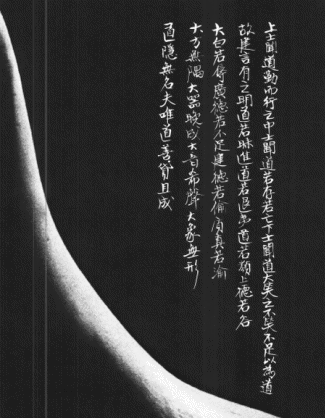 上士聞道勤而行之中士聞道若存若亡下士聞道大笑之不笑不足以為道
故建言有之明道若昧進道若退夷道若纇上德若谷
大白若辱廣德若不足建德若偷質真若渝
大方無隅大器晚成大音希聲大象無形
道隱無名夫唯道善貸且成